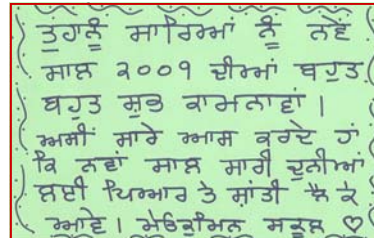 ਤੁਹਾਨੂੰ ਸਾਰਿਆਂ ਨੂੰ ਨਵੇਂ
ਸਾਲ ੨੦੦੧ ਦੀਆਂ ਬਹੁਤ
ਬਹੁਤ ਸ਼ੁਭ ਕਾਮਨਾਵਾਂ ।
ਅਸੀਂ ਸਾਰੇ ਆਸ ਕਰਦੇ ਹਾਂ
ਕਿ ਨਵਾਂ ਸਾਲ ਸਾਰੀ ਦੁਨੀਆਂ
ਲਈ ਪਿਆਰ ਤੇ ਸ਼ਾਂਤੀ ਲੈ ਕੇ
ਆਵੇ । ਸਕੂਲ